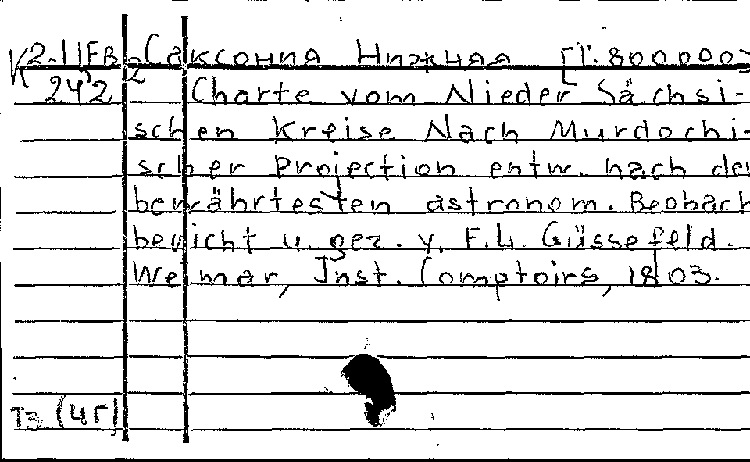 К2-II Ев 2 Саксония Нижняя [1:800000]
242 Charte vom Nieder Sächsi-
schen Kreise Nach Murdochi-
scher Projection entw. nach den
bewährtesten astronom. Beobach
bericht u. gez. v. F.L. Güssefeld.
Weimar, Inst. Comptoirs, 1803.
Тз (4г)